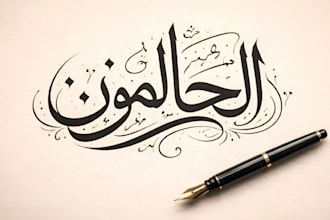 الحالمون